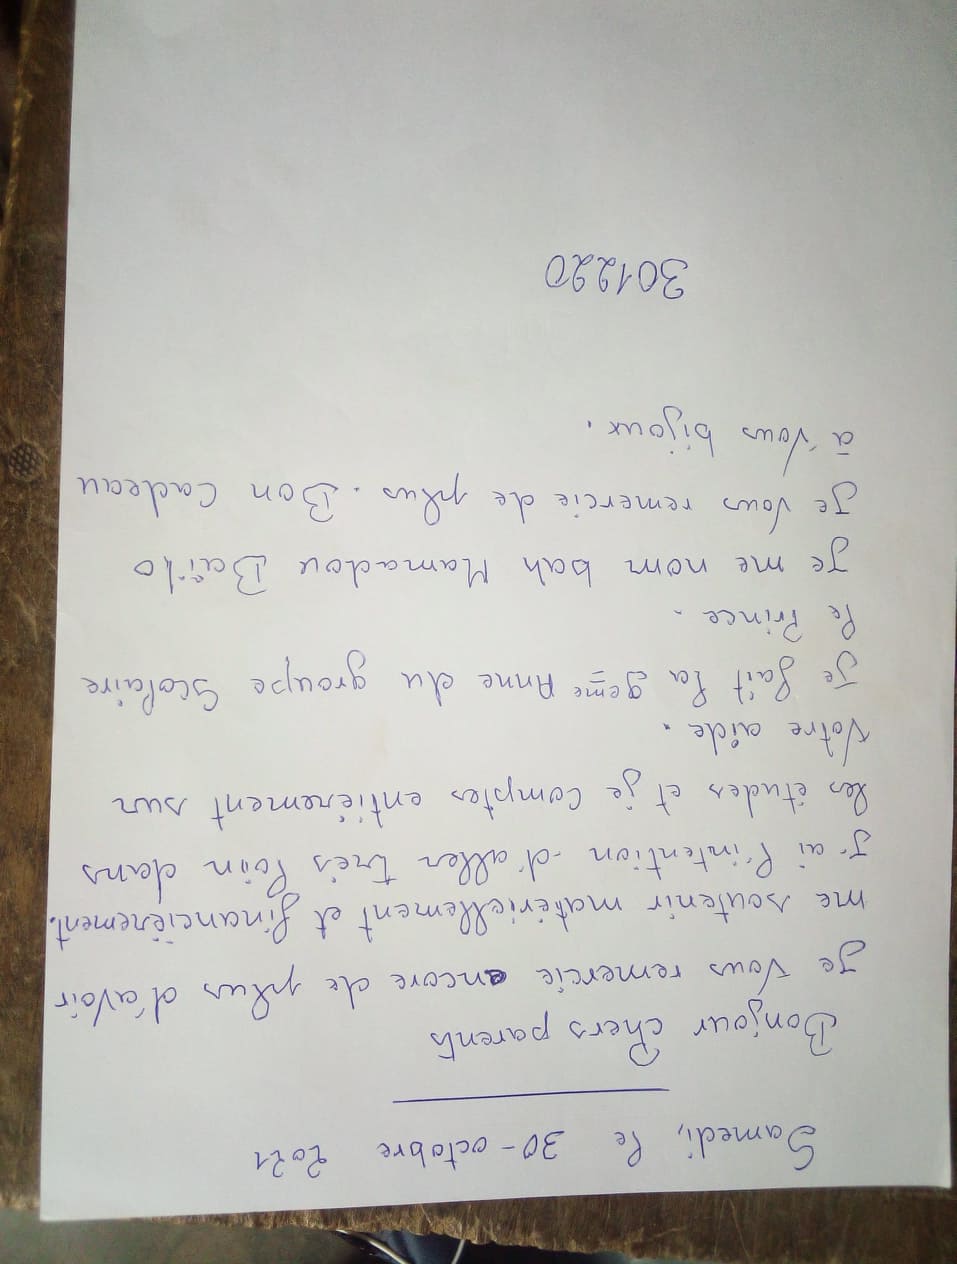 Samedi, le 30-octobre 2021
Bonjour chers parents
Je Vous remercie encore de plus d'avoir
me soutenir matériellement et financièrement.
J'ai l'intention d'aller très loin dans
les études et je comptes entièrement sur
Votre aide.
Je fait la 9eme Anne du groupe Scolaire
le Prince.
Je me nom bah Mamadou Bailo
Je Vous remercie de plus. Bon Cadeau
à Vous bijoux.
301220